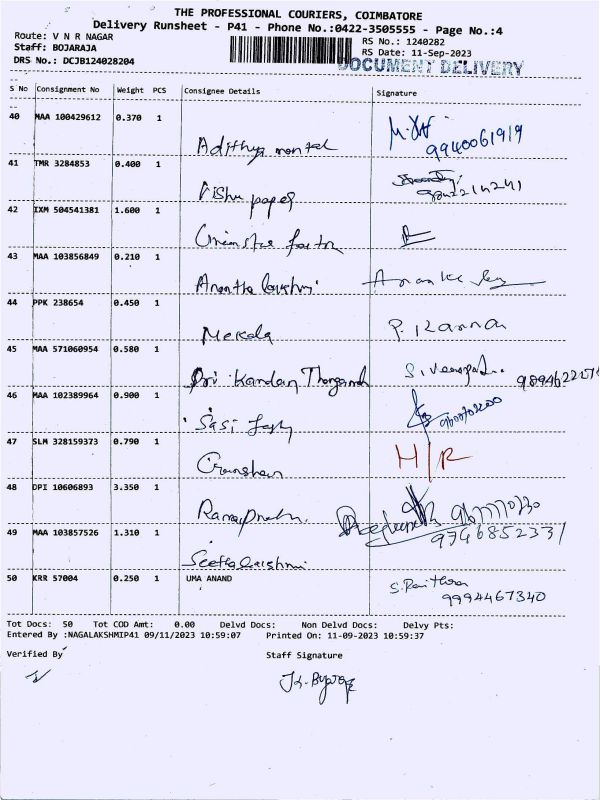 THE PROFESSIONAL COURIERS, COIMBATORE
Delivery Runsheet - P41 - Phone No.:0422-3505555 - Page No.:4
Route: V N R NAGAR
RS No.: 1240282
Staff: BOJARAJA
RS Date: 11-Sep-2023
DRS No.: DCJB124028204
DOCUMENT DELIVERY
S No Consignment No Weight PCS Consignee Details Signature
40 MAA 100429612 0.370 1
Adithya mental
9940061919
41 TMR 3284853 0.400 1
Vishu paper
42 IXM 504541381 1.600 1
43 MAA 103856849 0.210 1
Anantha lakshmi
44 PPK 238654 0.450 1
Mekala P. Kannan
45 MAA 571060954 0.580 1
Sri Kandan
46 MAA 102389964 0.900 1
Sasi
47 SLM 328159373 0.790 1
H/R
48 DPI 10606893 3.350 1
49 MAA 103857526 1.310 1
9746852331
Seetha lakshmi
50 KRR 57004 0.250 1 UMA ANAND
9994467340
Tot Docs: 50 Tot COD Amt: 0.00 Delvd Docs: Non Delvd Docs: Delvy Pts:
Entered By :NAGALAKSHMIP41 09/11/2023 10:59:07 Printed On: 11-09-2023 10:59:37
Verified By Staff Signature